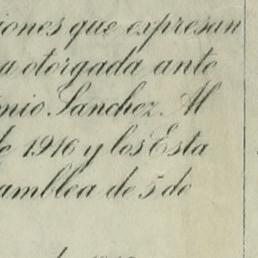 iones que expresan
a otorgada ante
nio Sanchez. Al
de 1916 y los Esta
amblea de 5 de